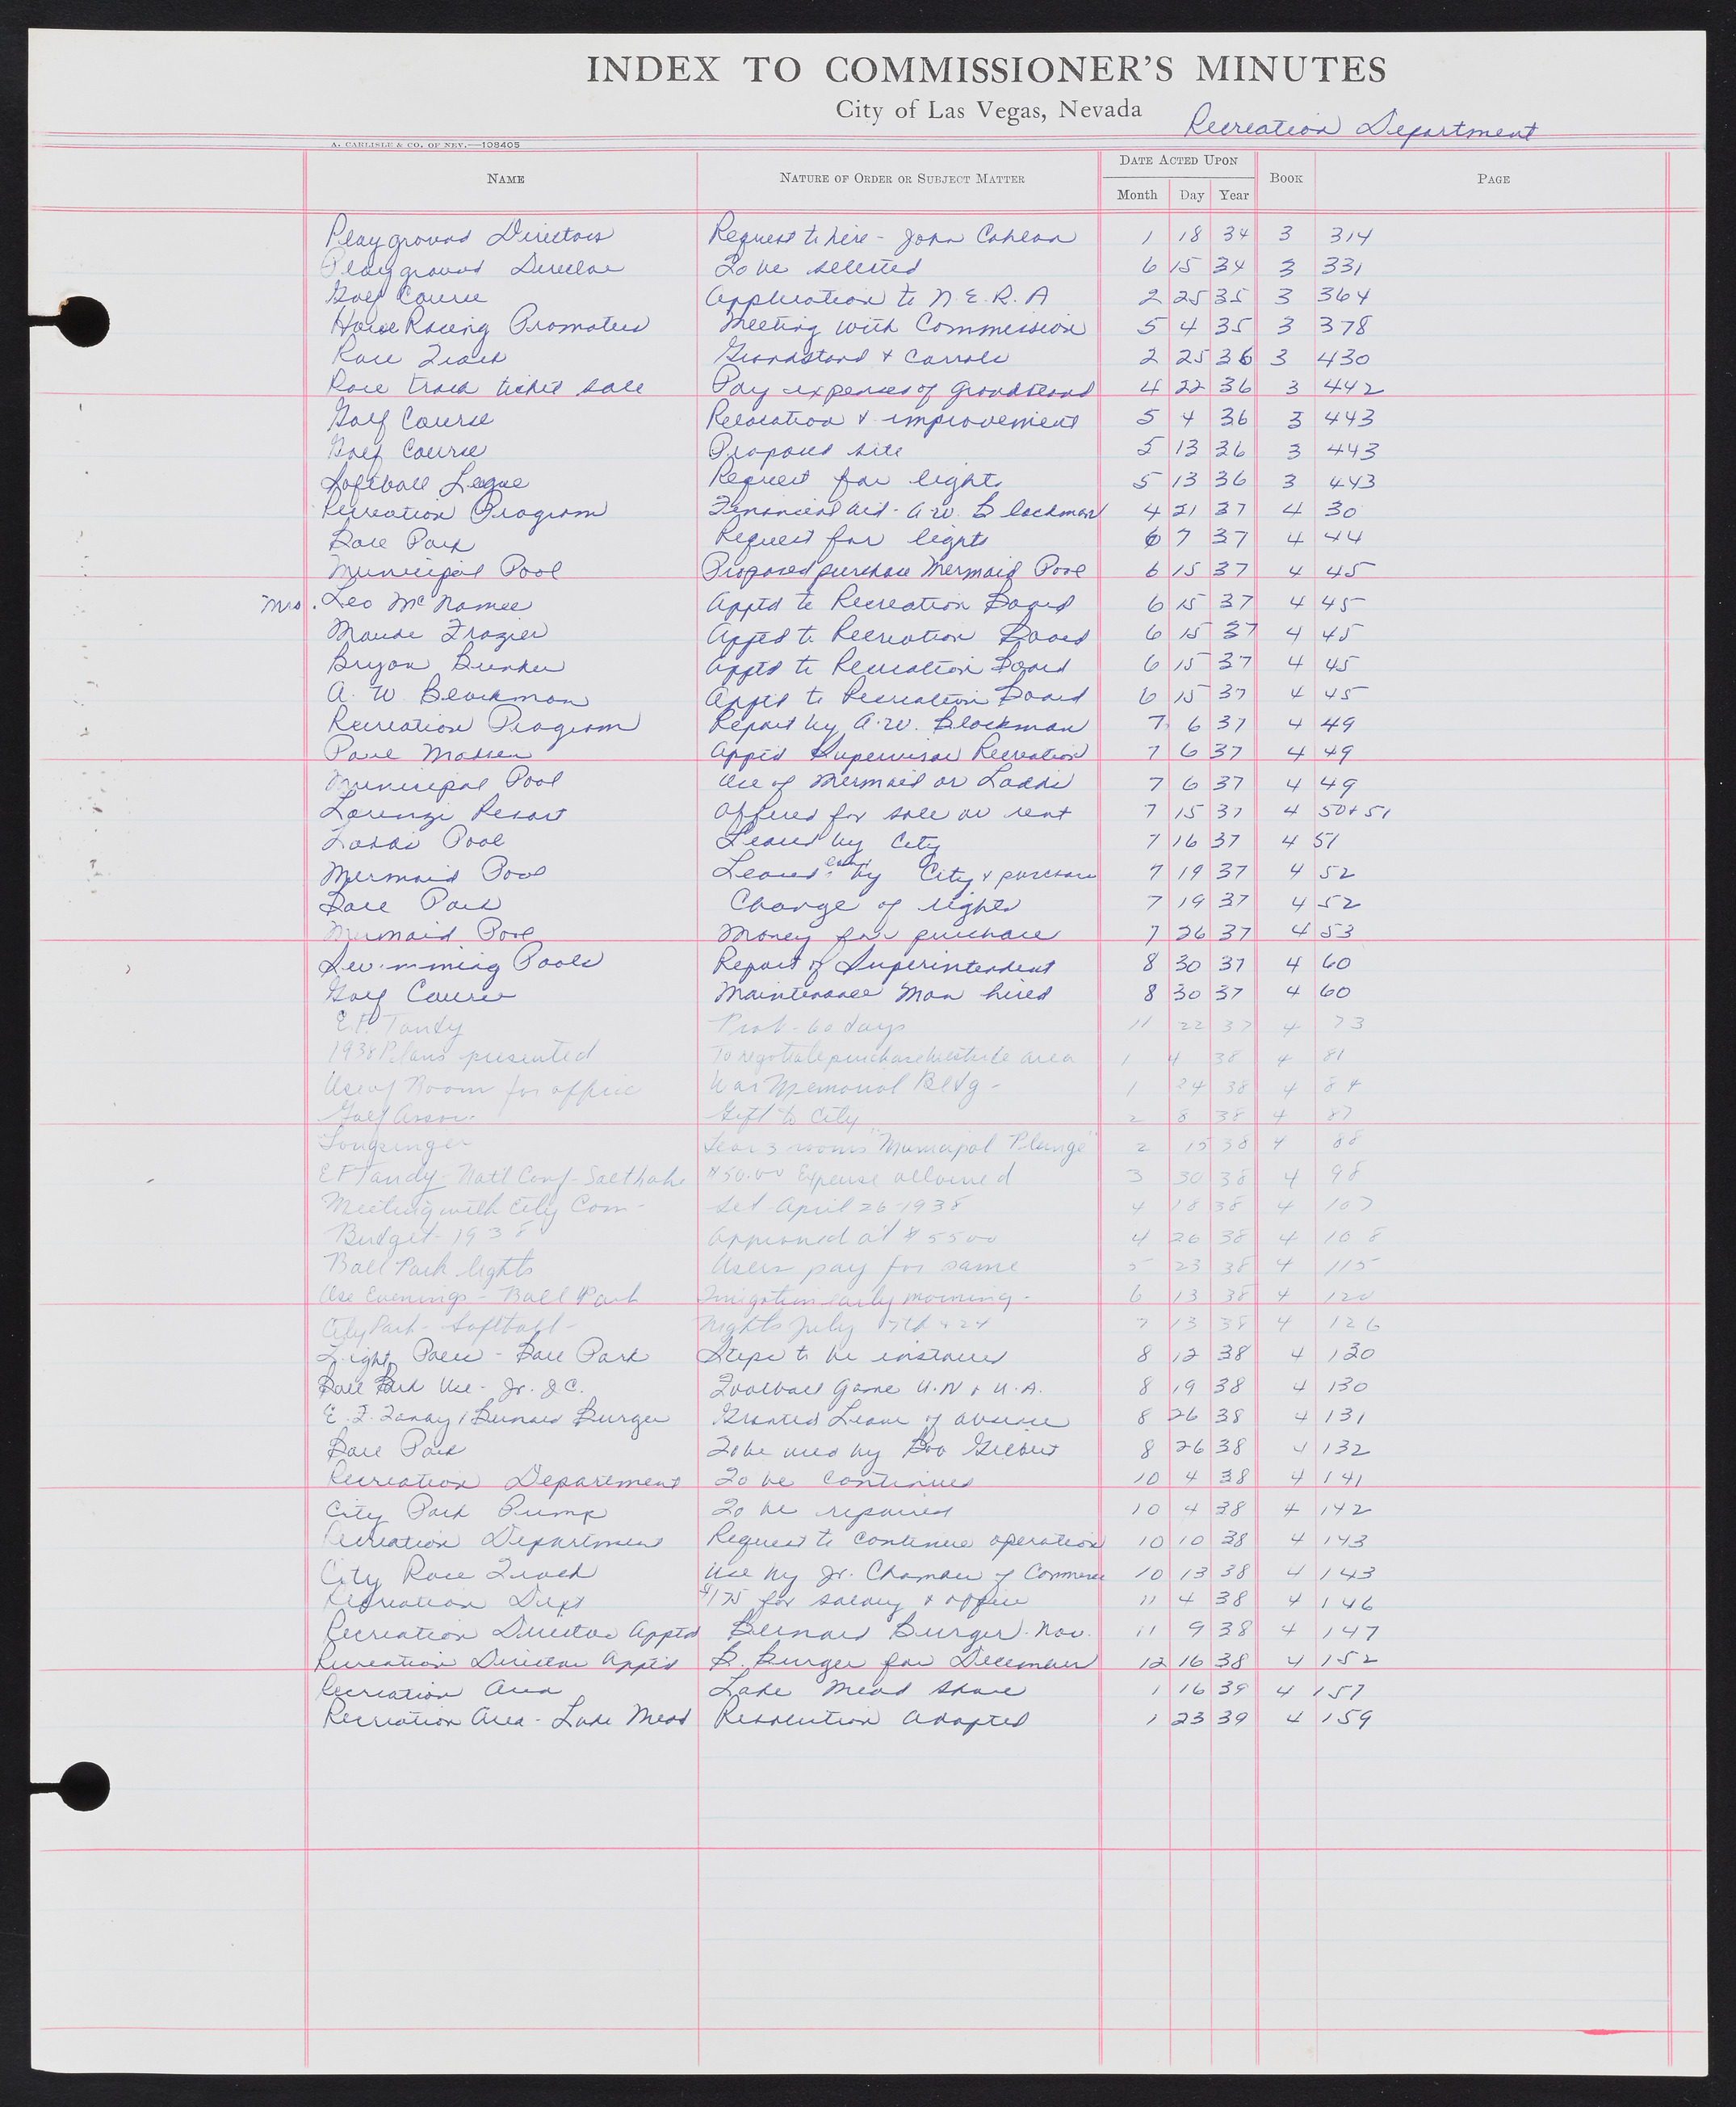 INDEX TO COMMISSIONER'S MINUTES
City of Las Vegas, Nevada
Recreation Department
A. CARLISLE & CO. OF NEV.—108405
NAME NATURE OF ORDER OR SUBJECT MATTER DATE ACTED UPON BOOK PAGE
Month Day Year
Playground Directors Request to hire - John Cahlan 1 18 34 3 314
Playground Director To be selected 6 15 34 3 331
Golf Course Application to N.E.R.A 2 25 35 3 364
Horse Racing Promoters Meeting with Commission 5 4 35 3 378
Race Track Grandstand & Corrals 2 25 36 3 430
Race track ticket sale Pay expenses of grandstand 4 22 36 3 442
Golf Course Relocation & improvement 5 4 36 3 443
Golf Course Proposed site 5 13 36 3 443
Softball League Request for lights 5 13 36 3 443
Recreation Program Financial Aid - A.W. Blackman 4 21 37 4 30
Ball Park Request for lights 6 7 37 4 44
Municipal Pool Proposed purchase Mermaid Pool 6 15 37 4 45
Mrs. Leo McNamee Apptd to Recreation Board 6 15 37 4 45
Maude Frazier Apptd to Recreation Board 6 15 37 4 45
Bryan Bunker Apptd to Recreation Board 6 15 37 4 45
A. W. Blackman Apptd to Recreation Board 6 15 37 4 45
Recreation Program Report by A.W. Blackman 7 6 37 4 49
Paul Appt'd Supervisor Recreation 7 6 37 4 49
Municipal Pool Use of Mermaid or Ladds 7 6 37 4 49
Lorenzi Resort Offered for sale or rent 7 15 37 4 50+51
Ladds Pool Leased by City 7 16 37 4 51
Mermaid Pool Leased by City & purchase 7 19 37 4 52
Ball Park Change of lights 7 19 37 4 52
Mermaid Pool Money for purchase 7 26 37 4 53
Swimming Pools Report of Superintendent 8 30 37 4 60
Golf Course Maintenance Man hired 8 30 37 4 60
E.F. Tandy Prob - 60 days 11 22 37 4 73
1938 Plans presented To negotiate purchase Westside area 1 4 38 4 81
Use of Room for office War Memorial Bldg - 1 24 38 4 84
Golf Assoc. Gift to City 2 8 38 4 87
Longsinger 3 rooms "Municipal Plunge" 2 15 38 4 88
E F Tandy - Nat'l Conf - Salt Lake $50.00 Expense allowed 3 30 38 4 98
Meeting with City Com - Set April 26 - 1938 4 18 38 4 107
Budget - 1938 Approved at $5500 4 26 38 4 108
Ball Park lights Users pay for same 5 23 38 4 115
Use Evenings - Ball Park Irrigation early morning - 6 13 38 4 120
City Park - Softball - Nights July 17th & 24 7 13 38 4 126
Light Poles - Ball Park Steps to be installed 8 12 38 4 130
Ball Park Use - Jr. J.C. Football Game U.N & U.A. 8 19 38 4 130
E. F. Tandy / Bernard Burger Granted Leave of absence 8 26 38 4 131
Ball Park To be used by Boo Gilbert 8 26 38 4 132
Recreation Department To be continued 10 4 38 4 141
City Park Pump To be repaired 10 4 38 4 142
Recreation Department Request to continue operation 10 10 38 4 143
City Race Track Use by Jr. Chamber of Commerce 10 13 38 4 143
Recreation Dept $175 for salary & office 11 4 38 4 146
Recreation Director Apptd Bernard Burger - Nov. 11 9 38 4 147
Recreation Director Appt'd B. Burger for December 12 16 38 4 152
Recreation Area Lake Mead Shore 1 16 39 4 157
Recreation Area - Lake Mead Resolution Adopted 1 23 39 4 159